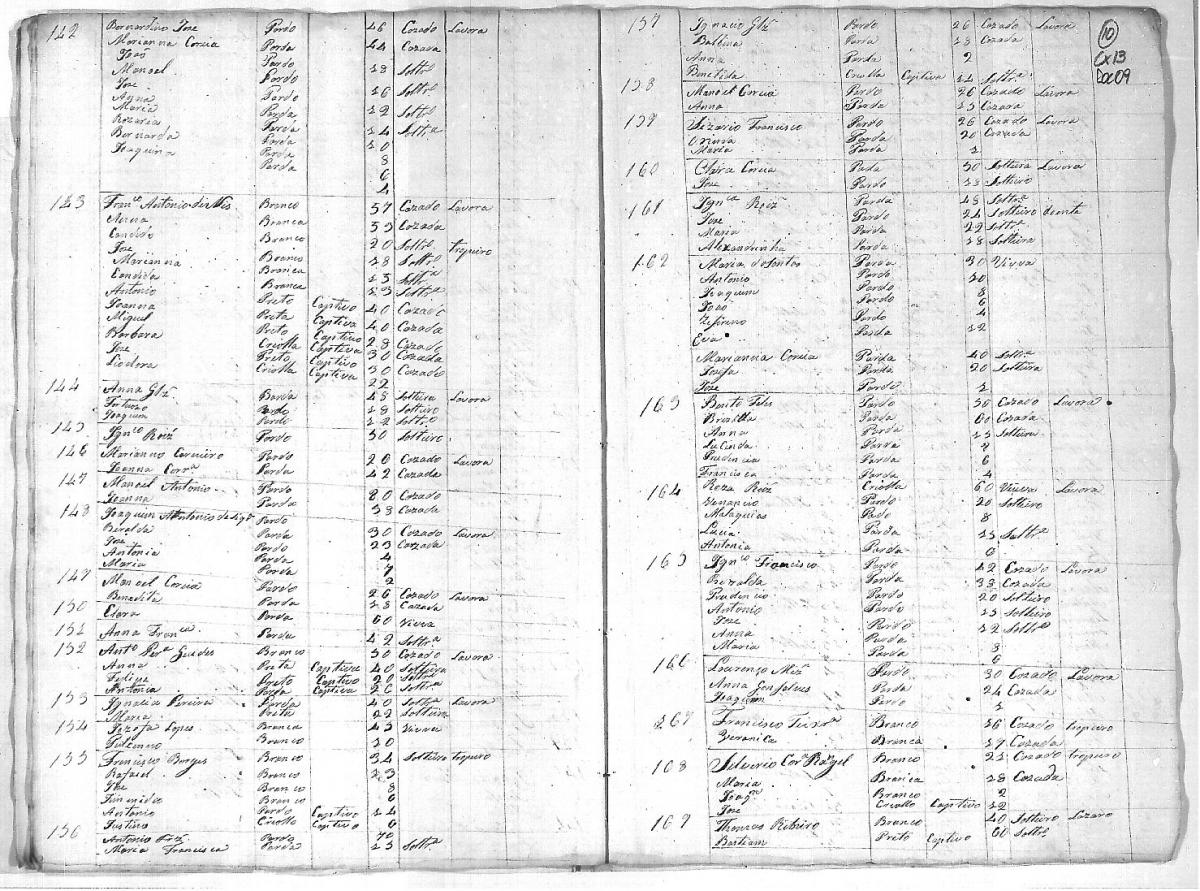 142 Bernardino Joze Pardo 46 Cazado Lavora
Marianna Correia Parda 44 Cazada
João Pardo 18 Soltro
Manoel Pardo 16 Soltro
Joze Pardo 12 Soltro
Anna Parda 14 Soltra
Maria Parda 10
Rozaria Parda 8
Bernarda Parda 6
Joaquina Parda 4
143 Franco Antonio Branco 57 Cazado Lavora
Anna Branca 53 Cazada
Candido Branco 20 Soltro tropeiro
Joze Branco 18 Soltro
Marianna Branca 15 Soltra
Candida Branca 13 Soltra
Antonio Preto Captivo 40 Cazado
Joanna Preta Captiva 40 Cazada
Miguel Preto Captivo 28 Cazado
Barbara Criolla Captiva 30 Cazada
Joze Preto Captivo 30 Cazado
Liodora Criolla Captiva 22
144 Anna Glz Parda 48 Solteira Lavora
Pardo 18 Solteiro
Joaquim Pardo 12 Soltro
145 Ignco Roiz Pardo 50 Solteiro
146 Marianno Carneiro Pardo 20 Cazado Lavora
Joanna Corra Parda 42 Cazada
147 Manoel Antonio Pardo 80 Cazado
Joanna Parda 58 Cazada
148 Joaquim Antonio Pardo 30 Cazado Lavora
Parda 23 Cazada
Joze Pardo 4
Antonia Parda 7
Maria Parda 2
149 Manoel Correia Pardo 26 Cazado Lavora
Benedita Parda 18 Cazada
150 Clara Parda 60 Viuva
151 Anna Franca Parda 42 Soltra
152 Anto Pera Guides Branco 50 Cazado Lavora
Anna Preta Captiva 40 Solteira
Felipe Preto Captivo 20 Soltro
Antonia Parda Captiva 26 Soltra
153 Ignacia Pereira Parda 40 Soltra Lavora
Maria Preta 22 Solteira
154 Jozefa Lopes Branca 43 Viuva
Branco 30
155 Francisco Borges Branco 34 Solteiro tropeiro
Rafael Branco 13
Joze Branco 8
Branco 6
Antonio Pardo Captivo 14
Justino Criollo Captivo 6
156 Antonio Frz Pardo 70
Maria Francisca Parda 25 Soltra
10
Cx13
Doc09
157 Ignacio Glz Pardo 26 Cazado Lavora
Balbina Parda 18 Cazada
Anna Parda 2
Benedita Criolla Captiva 14 Soltra
158 Manoel Correia Pardo 26 Cazado Lavora
Anna Parda 15 Cazada
159 Lizario Francisco Pardo 26 Cazado Lavora
Parda 20 Cazada
Maria Parda 2
160 Clara Correia Parda 50 Solteira Lavora
Joze Pardo 18 Solteiro
161 Ignca Roiz Parda 48 Soltra
Joze Pardo 24 Solteiro
Maria Parda 22 Soltra
Alexandrinha Parda 18 Solteira
162 Maria dos Santos Parda 30 Viuva
Antonio Pardo 10
Joaquim Pardo 8
João Pardo 6
Zeferino Pardo 4
Eva Parda 12
Marianna Correia Parda 40 Soltra
Jozefa Parda 20 Solteira
Joze Pardo 2
163 Bento Teles Pardo 50 Cazado Lavora
Parda 60 Cazada
Anna Parda 15 Solteira
Lucinda Parda 7
Prudencia Parda 6
Francisca Parda 4
164 Roza Roiz Criolla 60 Viuva Lavora
Venancio Pardo 20 Solteiro
Malaquias Pardo 8
Luzia Parda 15 Soltra
Antonia Parda 6
165 Ignco Francisco Pardo 42 Cazado Lavora
Parda 33 Cazada
Prudencio Pardo 20 Solteiro
Antonio Pardo 15 Solteiro
Joze Pardo 12 Soltro
Anna Parda 8
Maria Parda 6
166 Lourenço Miz Pardo 30 Cazado Lavora
Anna Gonsalves Parda 24 Cazada
Joaquim Pardo 2
167 Francisco Branco 36 Cazado tropeiro
Veronica Branca 17 Cazada
168 Silverio Cor Rangel Branco 22 Cazado tropeiro
Maria Branca 28 Cazada
Branco 2
Joze Criollo Captivo 12
169 Thomas Ribeiro Branco 40 Solteiro Lazaro
Bastiam Preto Captivo 60 Soltro